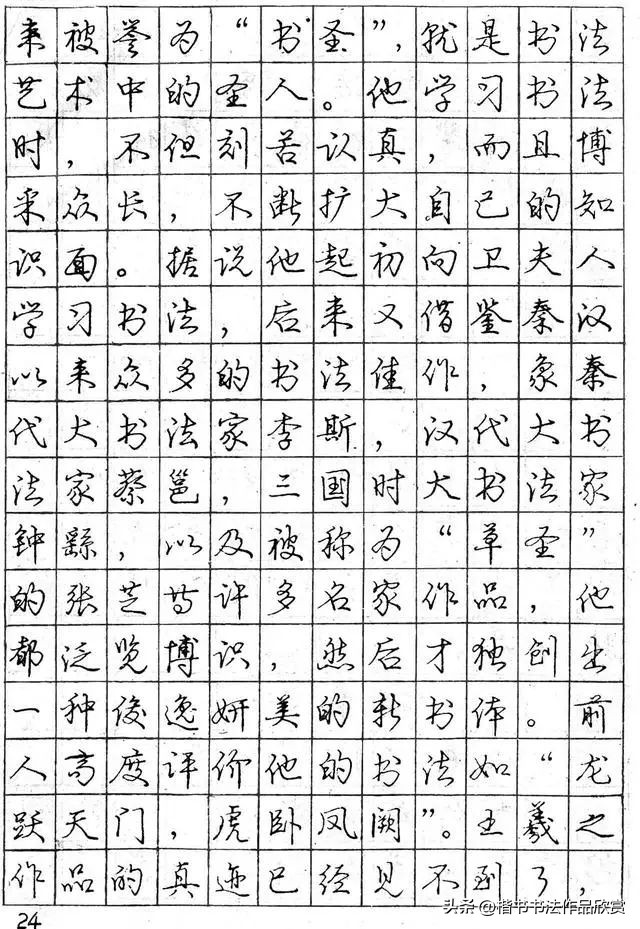 来被誉为“书圣”,就是书法
艺术中的圣人。他学习书法
时,不但刻苦认真,而且博
采众长,不断扩大自己的知
识面。据说他起初向卫夫人
学习书法,后来又借鉴秦汉
以来众多的书法佳作,象秦
代大书法家李斯,汉代大书
法家蔡邕,三国时大书法家
钟繇,以及被称为“草圣”
的张芝等许多名家作品,他
都泛览博识,然后才独创出
一种俊逸妍美的新书体。前
人高度评价他的书法如“龙
跃天门,虎卧凤阙”。王羲之
作品的真迹已经见不到了,
24
头条@楷书书法作品欣赏